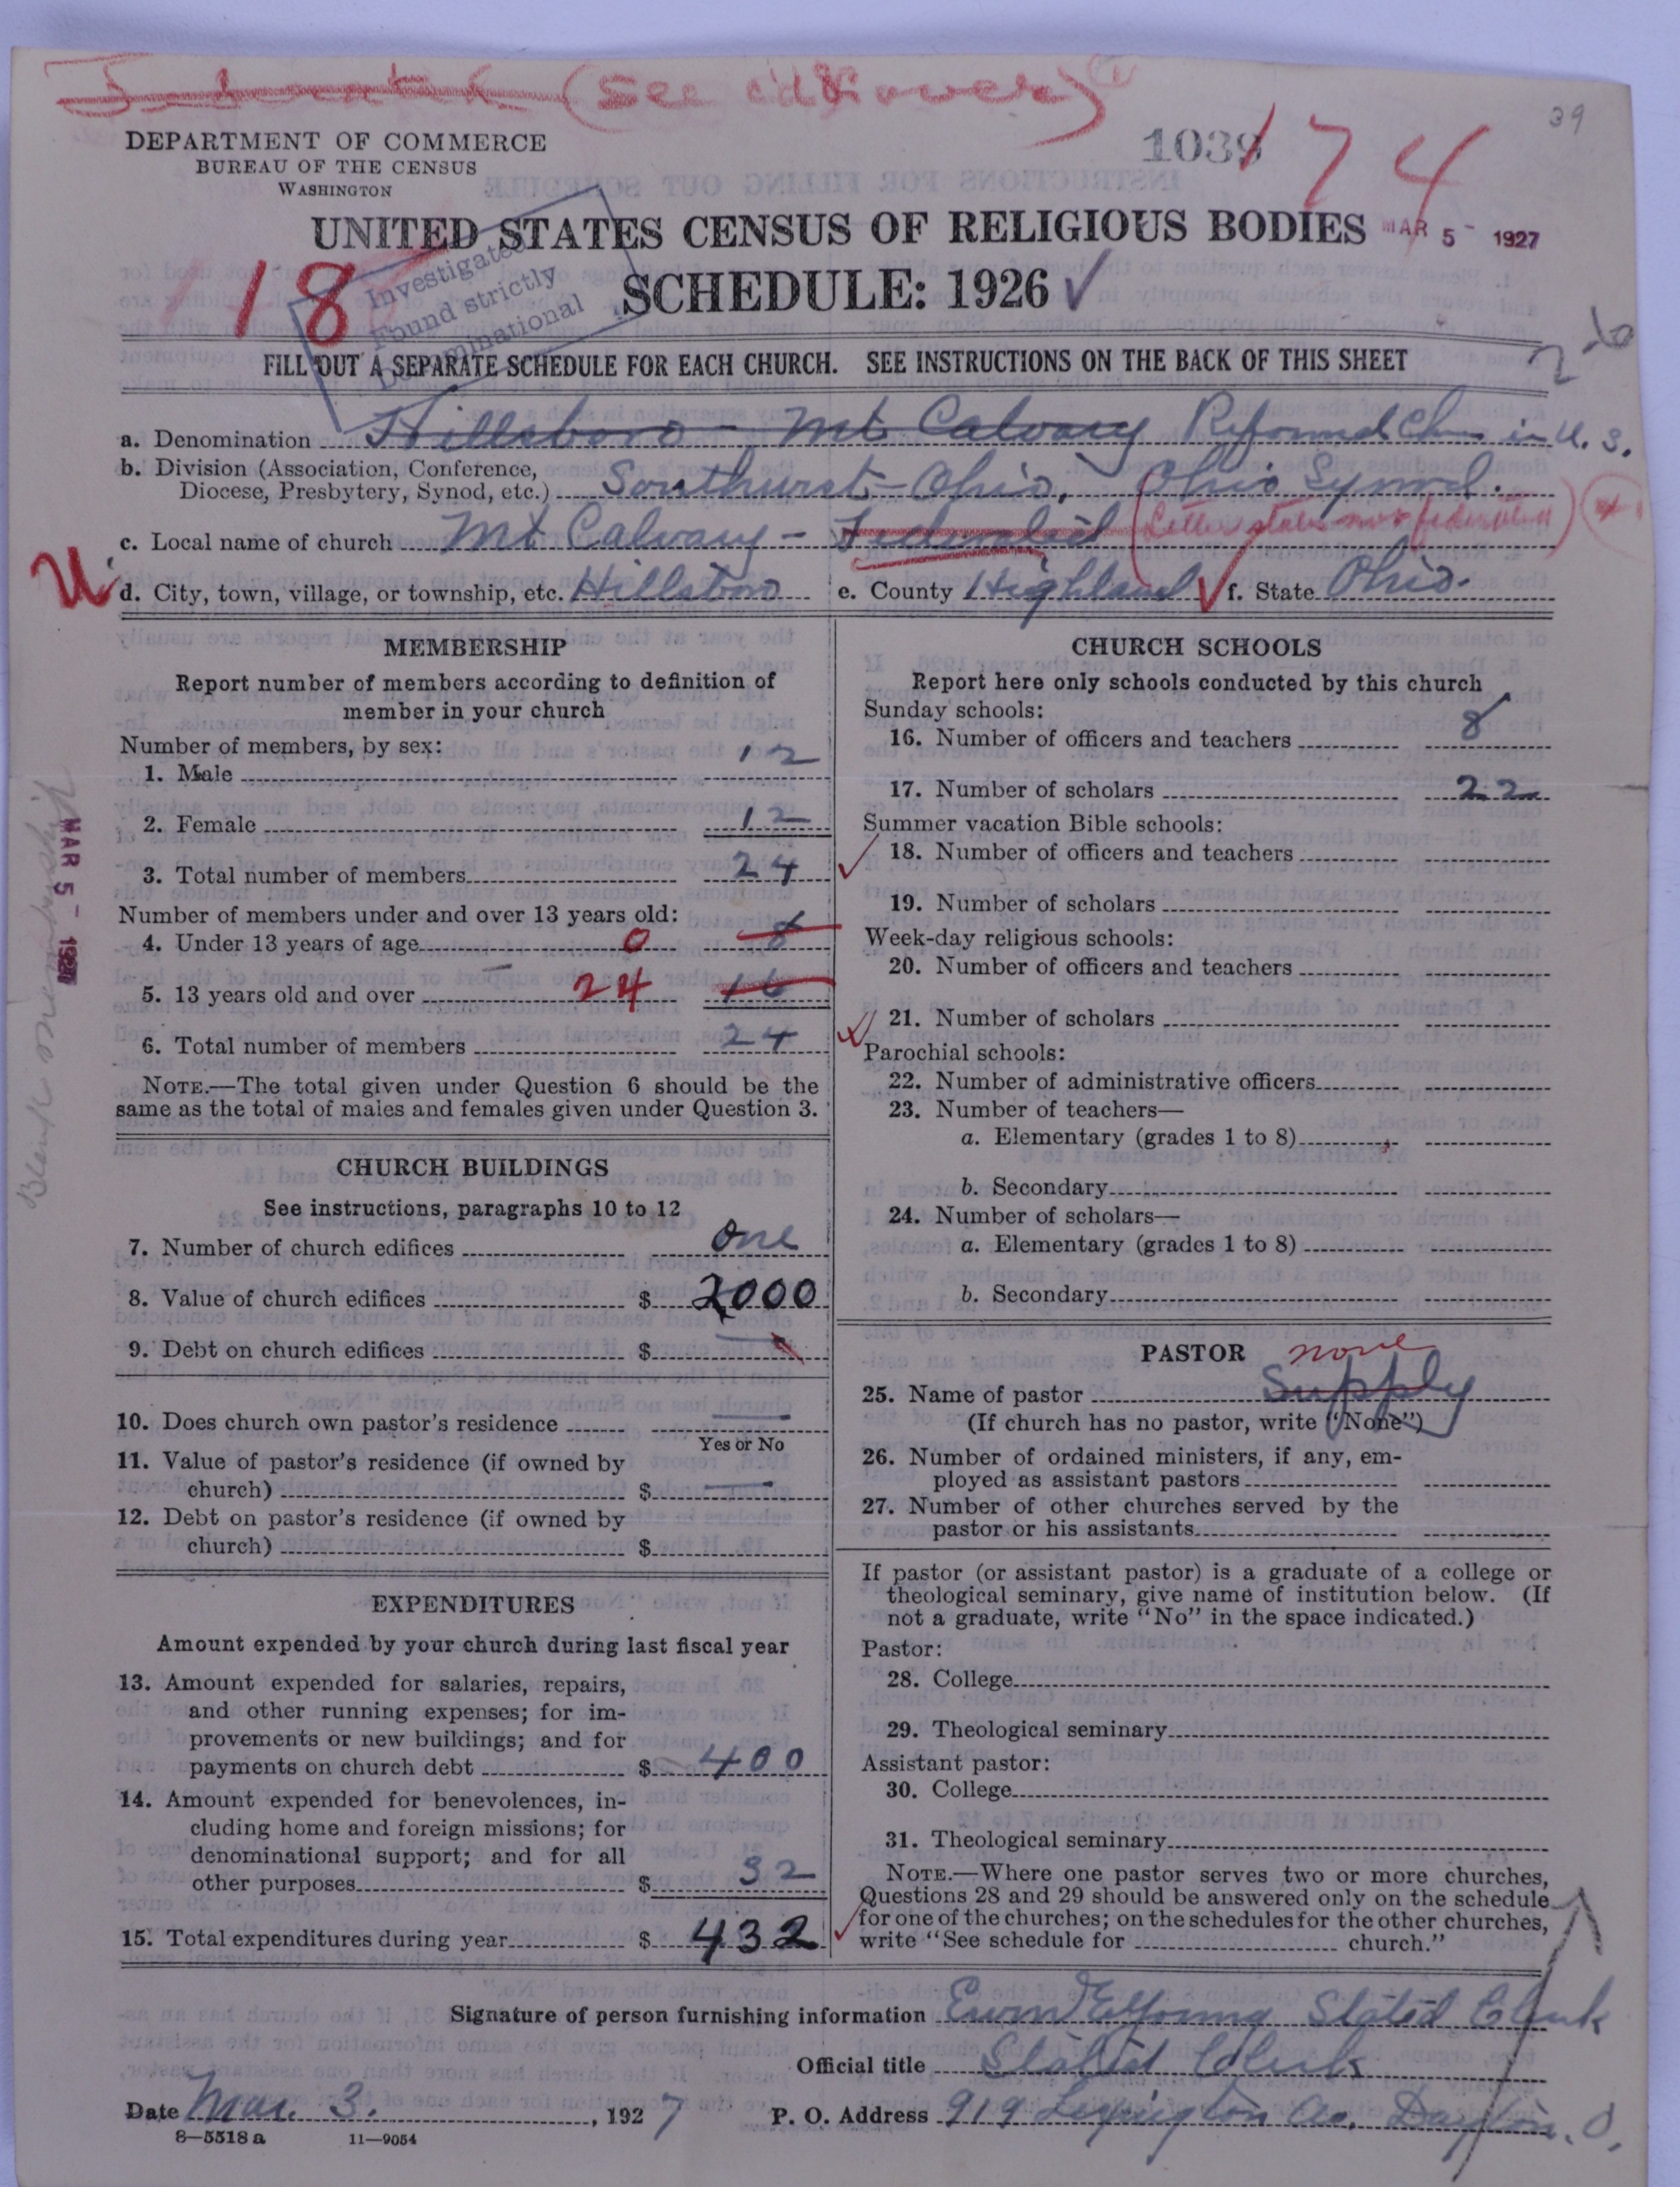 Federated (See id & over)
39
DEPARTMENT OF COMMERCE
BUREAU OF THE CENSUS
WASHINGTON
1039
174
UNITED STATES CENSUS OF RELIGIOUS BODIES
MAR 5 - 1927
SCHEDULE: 1926
18
Investigated
Found strictly
Denominational
FILL OUT A SEPARATE SCHEDULE FOR EACH CHURCH. SEE INSTRUCTIONS ON THE BACK OF THIS SHEET
a. Denomination Hillsboro - Mt Calvary Reformed Ch in U. S.
b. Division (Association, Conference,
Diocese, Presbytery, Synod, etc.) Southwest-Ohio, Ohio Synod.
c. Local name of church Mt Calvary - Federated (Letter states not federated)
U
d. City, town, village, or township, etc. Hillsboro e. County Highland f. State Ohio.
MEMBERSHIP
Report number of members according to definition of
member in your church
Number of members, by sex:
1. Male 12
2. Female 12
3. Total number of members 24
Number of members under and over 13 years old:
4. Under 13 years of age 0 8
5. 13 years old and over 24 16
6. Total number of members 24
NOTE.—The total given under Question 6 should be the
same as the total of males and females given under Question 3.
MAR 5 - 1927
CHURCH BUILDINGS
See instructions, paragraphs 10 to 12
7. Number of church edifices one
8. Value of church edifices $ 2000
9. Debt on church edifices $ —
10. Does church own pastor's residence —
Yes or No
11. Value of pastor's residence (if owned by
church) $ —
12. Debt on pastor's residence (if owned by
church) $
EXPENDITURES
Amount expended by your church during last fiscal year
13. Amount expended for salaries, repairs,
and other running expenses; for im-
provements or new buildings; and for
payments on church debt $ 400
14. Amount expended for benevolences, in-
cluding home and foreign missions; for
denominational support; and for all
other purposes $ 32
15. Total expenditures during year $ 432
CHURCH SCHOOLS
Report here only schools conducted by this church
Sunday schools:
16. Number of officers and teachers 8
17. Number of scholars 22
Summer vacation Bible schools:
18. Number of officers and teachers
19. Number of scholars
Week-day religious schools:
20. Number of officers and teachers
21. Number of scholars
Parochial schools:
22. Number of administrative officers
23. Number of teachers—
a. Elementary (grades 1 to 8)
b. Secondary
24. Number of scholars—
a. Elementary (grades 1 to 8)
b. Secondary
PASTOR none
25. Name of pastor Supply
(If church has no pastor, write "None")
26. Number of ordained ministers, if any, em-
ployed as assistant pastors
27. Number of other churches served by the
pastor or his assistants
If pastor (or assistant pastor) is a graduate of a college or
theological seminary, give name of institution below. (If
not a graduate, write "No" in the space indicated.)
Pastor:
28. College
29. Theological seminary
Assistant pastor:
30. College
31. Theological seminary
NOTE.—Where one pastor serves two or more churches,
Questions 28 and 29 should be answered only on the schedule
for one of the churches; on the schedules for the other churches,
write "See schedule for church."
Signature of person furnishing information Erwin E Young Stated Clerk
Official title Stated Clerk
Date Mar. 3. , 1927 P. O. Address 919 Lexington Av. Dayton. O.
8—5518 a 11—9054